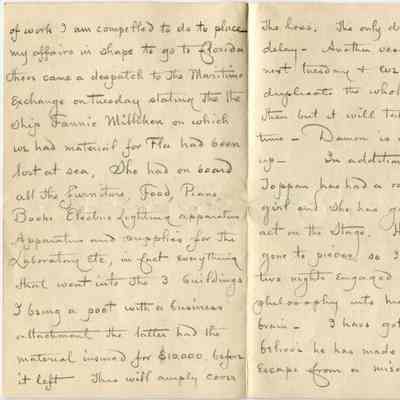 of work I am compelled to do to place
my affairs in shape to go to Florida
there came a despatch to the Maritime
Exchange on Tuesday stating the the
Ship Fannie Milliken on which
we had material for Fla had been
lost at sea, She had on board
all the furniture, Food, Piano
Books Electric Lighting apparatus
Apparatus and supplies for the
Laboratory etc, in fact everything
that went into the 3 buildings
I being a poet with a business
attachment the latter had the
material insured for $10,000 before
it left This will amply cover
The loss. The only d
delay— Another ves
next tuesday &
duplicate the whol
then but it will ta
time— Damon is
up— In addition
Toppan has had a
girl and she has g
act on the Stage. H
gone to pieces so I
two nights engaged
philosophy into h
brain— I have got
believe he has made
Escape from a mis